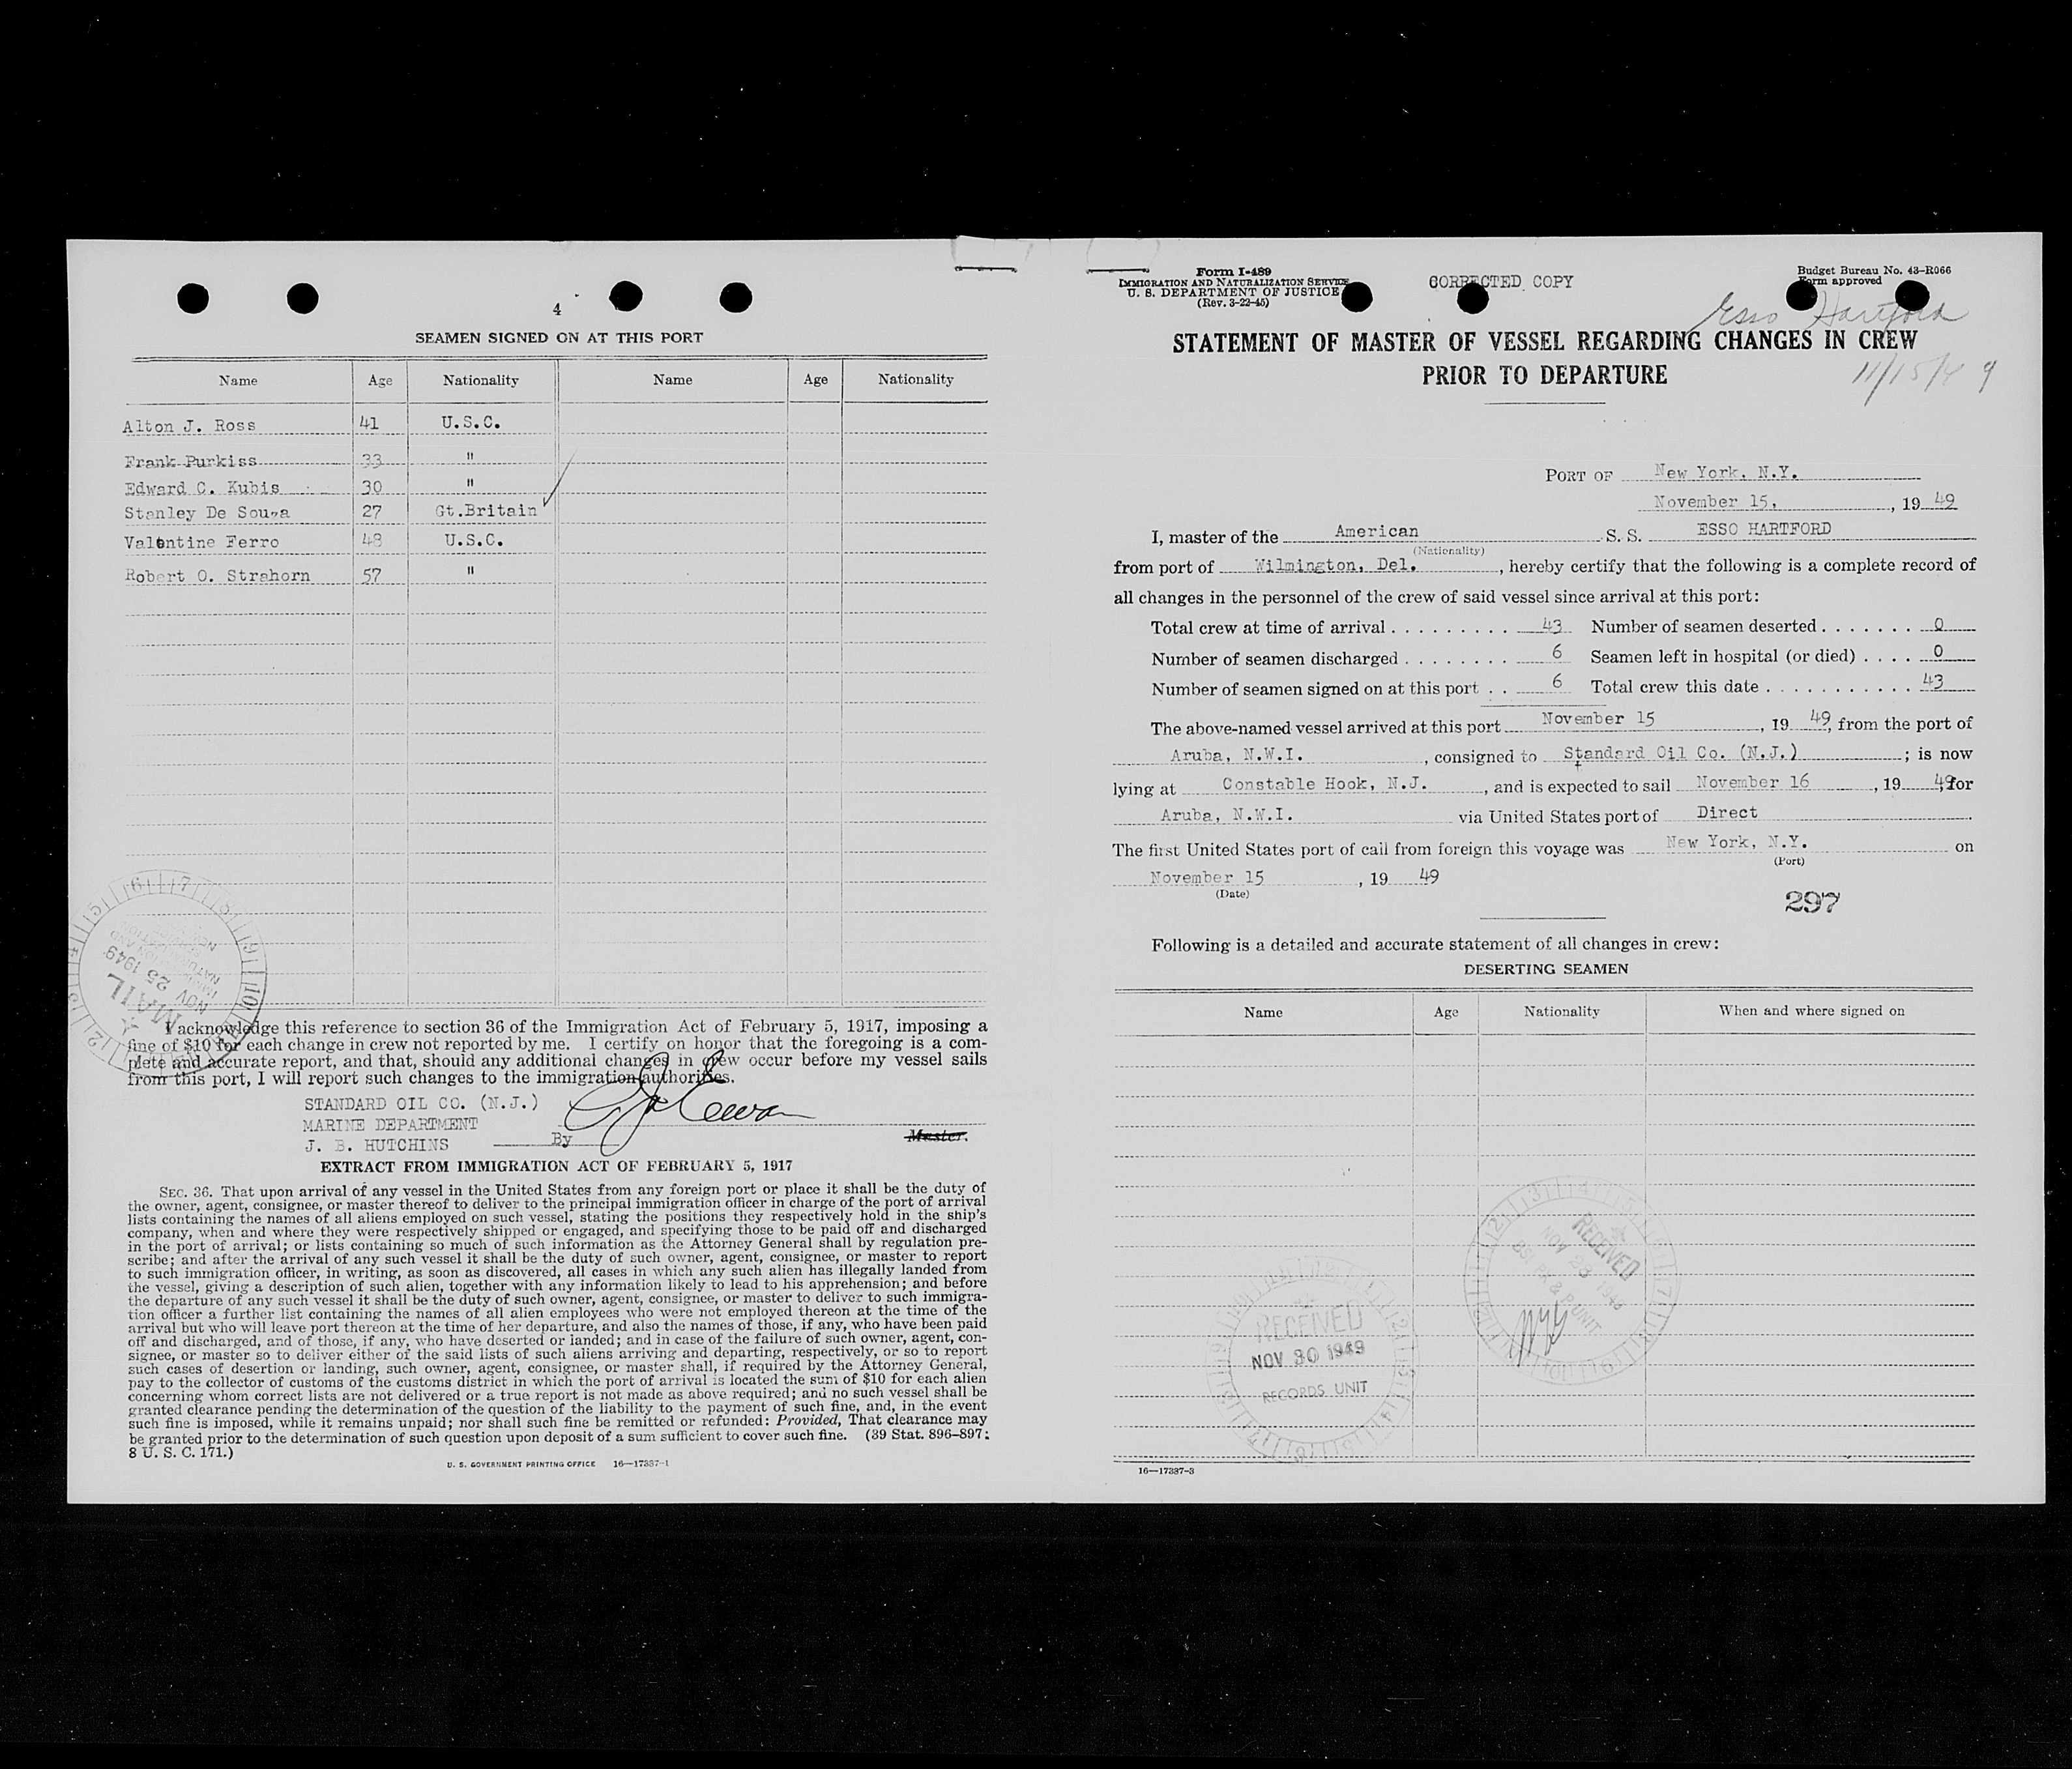 4
SEAMEN SIGNED ON AT THIS PORT
Name Age Nationality Name Age Nationality
Alton J. Ross 41 U.S.C.
Frank Purkiss 33 "
Edward C. Kubis 30 "
Stanley De Souza 27 Gt.Britain
Valentine Ferro 48 U.S.C.
Robert O. Strahorn 57 "
MAIL
NOV 25 1949
I acknowledge this reference to section 36 of the Immigration Act of February 5, 1917, imposing a
fine of $10 for each change in crew not reported by me. I certify on honor that the foregoing is a com-
plete and accurate report, and that, should any additional changes in crew occur before my vessel sails
from this port, I will report such changes to the immigration authorities.
STANDARD OIL CO. (N.J.)
MARINE DEPARTMENT
J. B. HUTCHINS By Master.
EXTRACT FROM IMMIGRATION ACT OF FEBRUARY 5, 1917
SEC. 36. That upon arrival of any vessel in the United States from any foreign port or place it shall be the duty of
the owner, agent, consignee, or master thereof to deliver to the principal immigration officer in charge of the port of arrival
lists containing the names of all aliens employed on such vessel, stating the positions they respectively hold in the ship's
company, when and where they were respectively shipped or engaged, and specifying those to be paid off and discharged
in the port of arrival; or lists containing so much of such information as the Attorney General shall by regulation pre-
scribe; and after the arrival of any such vessel it shall be the duty of such owner, agent, consignee, or master to report
to such immigration officer, in writing, as soon as discovered, all cases in which any such alien has illegally landed from
the vessel, giving a description of such alien, together with any information likely to lead to his apprehension; and before
the departure of any such vessel it shall be the duty of such owner, agent, consignee, or master to deliver to such immigra-
tion officer a further list containing the names of all alien employees who were not employed thereon at the time of the
arrival but who will leave port thereon at the time of her departure, and also the names of those, if any, who have been paid
off and discharged, and of those, if any, who have deserted or landed; and in case of the failure of such owner, agent, con-
signee, or master so to deliver either of the said lists of such aliens arriving and departing, respectively, or so to report
such cases of desertion or landing, such owner, agent, consignee, or master shall, if required by the Attorney General,
pay to the collector of customs of the customs district in which the port of arrival is located the sum of $10 for each alien
concerning whom correct lists are not delivered or a true report is not made as above required; and no such vessel shall be
granted clearance pending the determination of the question of the liability to the payment of such fine, and, in the event
such fine is imposed, while it remains unpaid; nor shall such fine be remitted or refunded: Provided, That clearance may
be granted prior to the determination of such question upon deposit of a sum sufficient to cover such fine. (39 Stat. 896-897;
8 U. S. C. 171.)
U. S. GOVERNMENT PRINTING OFFICE 16—17337-1
Form I-489
IMMIGRATION AND NATURALIZATION SERVICE
U. S. DEPARTMENT OF JUSTICE
(Rev. 3-22-45)
CORRECTED COPY
Budget Bureau No. 43-R066
Form approved
Esso Hartford
11/15/49
STATEMENT OF MASTER OF VESSEL REGARDING CHANGES IN CREW
PRIOR TO DEPARTURE
PORT OF New York, N.Y.
November 15, , 19 49
I, master of the American S. S. ESSO HARTFORD
(Nationality)
from port of Wilmington, Del. , hereby certify that the following is a complete record of
all changes in the personnel of the crew of said vessel since arrival at this port:
Total crew at time of arrival . . . . . . . . . 43 Number of seamen deserted . . . . . . . 0
Number of seamen discharged . . . . . . . . 6 Seamen left in hospital (or died) . . . . 0
Number of seamen signed on at this port . . 6 Total crew this date . . . . . . . . . . . 43
The above-named vessel arrived at this port November 15 , 19 49, from the port of
Aruba, N.W.I. , consigned to Standard Oil Co. (N.J.) ; is now
lying at Constable Hook, N.J. , and is expected to sail November 16 , 19 49, for
Aruba, N.W.I. via United States port of Direct
The first United States port of call from foreign this voyage was New York, N.Y. on
(Port)
November 15 , 19 49
(Date)
297
Following is a detailed and accurate statement of all changes in crew:
DESERTING SEAMEN
Name Age Nationality When and where signed on
RECEIVED
NOV 30 1949
RECORDS UNIT
RECEIVED
16—17337-3